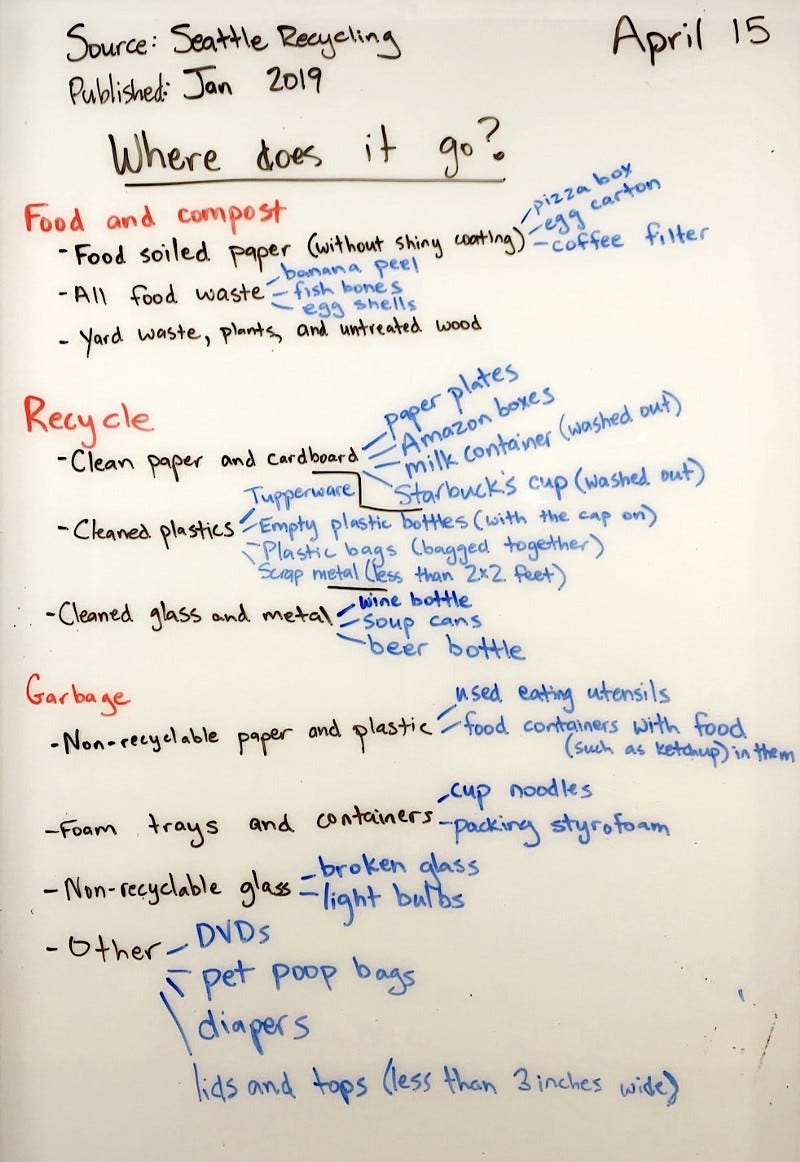 Source: Seattle Recycling
April 15
Published: Jan 2019
Where does it go?
Food and compost
- Food soiled paper (without shiny coating)
pizza box
egg carton
coffee filter
- All food waste
banana peel
fish bones
egg shells
- Yard waste, plants, and untreated wood
Recycle
- Clean paper and cardboard
paper plates
Amazon boxes
milk container (washed out)
Starbuck's cup (washed out)
- Cleaned plastics
Tupperware
Empty plastic bottles (with the cap on)
Plastic bags (bagged together)
Scrap metal (less than 2x2 feet)
- Cleaned glass and metal
wine bottle
soup cans
beer bottle
Garbage
- Non-recyclable paper and plastic
used eating utensils
food containers with food
(such as ketchup) in them
- Foam trays and containers
cup noodles
packing styrofoam
- Non-recyclable glass
broken glass
light bulbs
- Other
DVDs
pet poop bags
diapers
lids and tops (less than 3 inches wide)